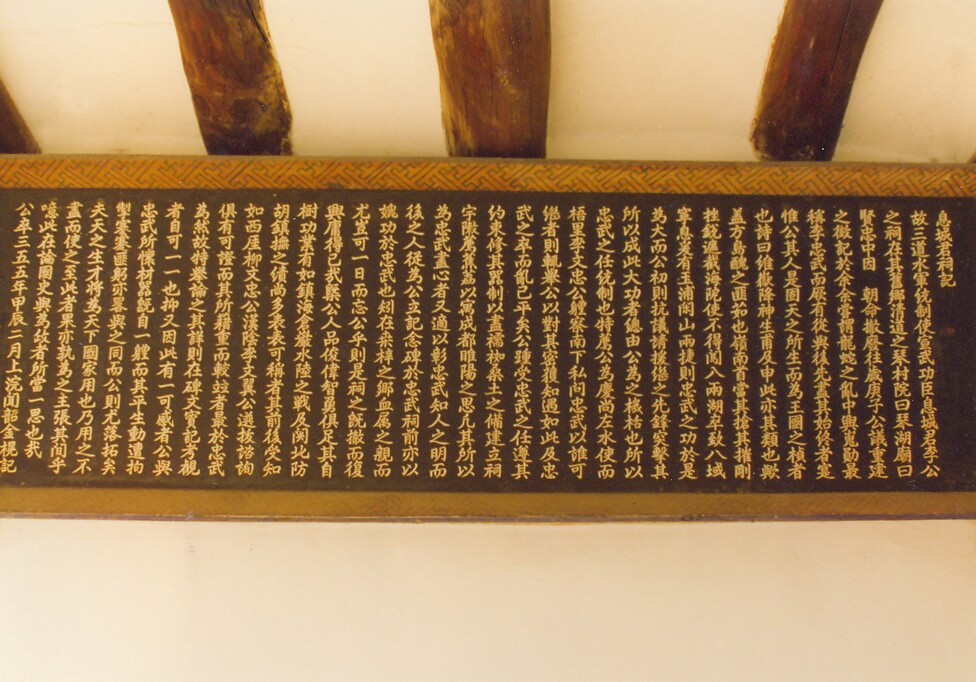 息城君祠記
故三道水軍統制使宣武功臣息城君李公
之祠在其舊鄉清道之琴村院曰琴湖廟曰
賢忠中因 朝命撤廢往歲庚子公議重建
之徵記於余余嘗謂龍蛇之亂中興嵬勳最
稱李忠武而厥有從與後先盡其始終者寔
惟公其人是固天之所生而為王國之楨者
也詩曰維嶽降神生甫及申此亦其類也歟
蓋方島醜之匪茹也嶺南首當其搶其摧剛
挫銳遮截海阨使不得闖入兩湖早致八域
掌息
為大而公初則抗議請援繼之先鋒突擊其
所以成此大功者總由公為之機栝也所以
忠武之任統制也特薦公為慶尚左水使而
梧里李文忠公體察南下私問忠武以誰可
繼者則輒舉公以對其密獲知遇如此及忠
武之卒而亂已平矣公踵受忠武之任遵其
約束修其器制以盡
宇
為忠武盡心者又適以彰忠武知人之明而
後之人從為公立記念碑於忠武祠前亦以
婉功於忠武也矧在桑梓之鄉血屬之親而
尤豈可一日而忘公乎則是祠之既撤而復
興庸得已哉槩公人品俊偉智勇俱足其自
樹功業有如鎮海倉巖水陸之戰及關北防
胡鎮撫之績尚多表表可稱者其前後受知
如西厓柳文忠公漢陰李文翼公遴拔諮詢
俱有可證而其所藉重而較著者最於忠武
為然故特舉論之其詳則在碑文實記考觀
者自可一一也抑又因此有一可感者公與
忠武所懷材器旣自一體而其平生動遭拘
掣蹇蹇匪躬亦畧與之同而公則尤落拓矣
夫天之生才將為天下國家用也乃用之不
盡而使之至此者果亦孰為之主張其間乎
噫此在論國史與為政者所當一思也哉
公卒三五五年甲辰一月上浣聞韶金榥記